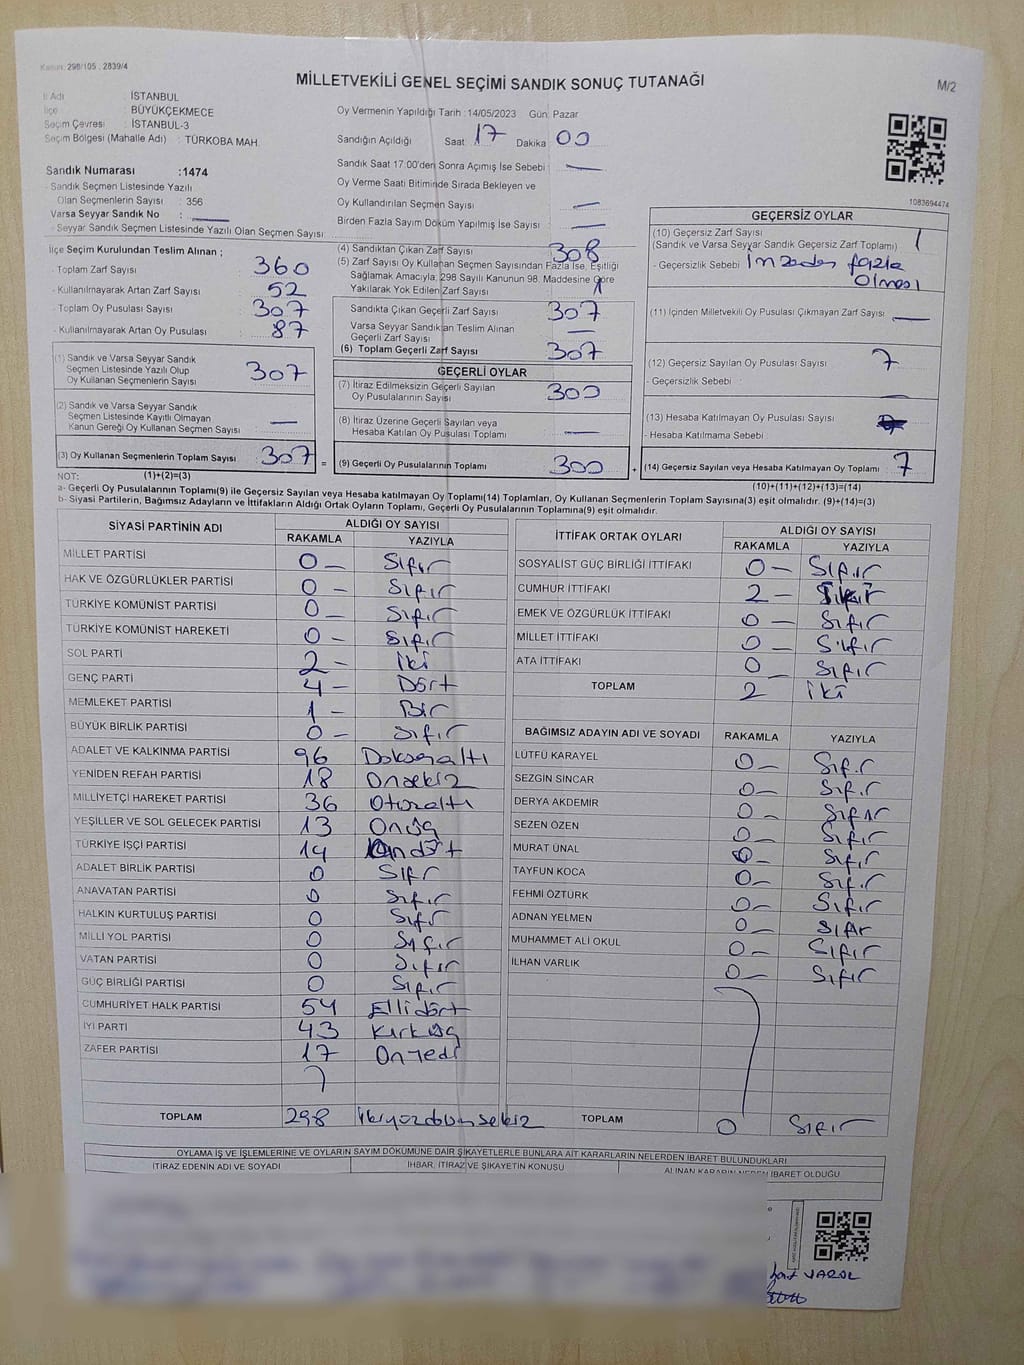 Kanun: 298/105 ; 2839/4
MİLLETVEKİLİ GENEL SEÇİMİ SANDIK SONUÇ TUTANAĞI
M/2
İl Adı : İSTANBUL
İlçe : BÜYÜKÇEKMECE
Seçim Çevresi : İSTANBUL-3
Seçim Bölgesi (Mahalle Adı) : TÜRKOBA MAH.
Sandık Numarası :1474
- Sandık Seçmen Listesinde Yazılı
Olan Seçmenlerin Sayısı : 356
Varsa Seyyar Sandık No : —
- Seyyar Sandık Seçmen Listesinde Yazılı Olan Seçmen Sayısı:
Oy Vermenin Yapıldığı Tarih :14/05/2023 Gün: Pazar
Sandığın Açıldığı Saat 17 Dakika 00
Sandık Saat 17:00'den Sonra Açımış İse Sebebi : —
Oy Verme Saati Bitiminde Sırada Bekleyen ve
Oy Kullandırılan Seçmen Sayısı : —
Birden Fazla Sayım Döküm Yapılmış İse Sayısı : —
1083694474
İlçe Seçim Kurulundan Teslim Alınan ;
- Toplam Zarf Sayısı : 360
- Kullanılmayarak Artan Zarf Sayısı : 52
- Toplam Oy Pusulası Sayısı : 307
- Kullanılmayarak Artan Oy Pusulası : 87
(1) Sandık ve Varsa Seyyar Sandık
Seçmen Listesinde Yazılı Olup
Oy Kullanan Seçmenlerin Sayısı : 307
(2) Sandık ve Varsa Seyyar Sandık
Seçmen Listesinde Kayıtlı Olmayan
Kanun Gereği Oy Kullanan Seçmen Sayısı : —
(3) Oy Kullanan Seçmenlerin Toplam Sayısı : 307 =
(4) Sandıktan Çıkan Zarf Sayısı : 308
(5) Zarf Sayısı Oy Kullanan Seçmen Sayısından Fazla İse, Eşitliği
Sağlamak Amacıyla, 298 Sayılı Kanunun 98. Maddesine Göre
Yakılarak Yok Edilen Zarf Sayısı : 1
Sandıkta Çıkan Geçerli Zarf Sayısı : 307
Varsa Seyyar Sandıktan Teslim Alınan
Geçerli Zarf Sayısı : —
(6) Toplam Geçerli Zarf Sayısı : 307
GEÇERLİ OYLAR
(7) İtiraz Edilmeksizin Geçerli Sayılan
Oy Pusulalarının Sayısı : 300
(8) İtiraz Üzerine Geçerli Sayılan veya
Hesaba Katılan Oy Pusulası Toplamı : —
(9) Geçerli Oy Pusulalarının Toplamı : 300 +
GEÇERSİZ OYLAR
(10) Geçersiz Zarf Sayısı :
(Sandık ve Varsa Seyyar Sandık Geçersiz Zarf Toplamı) 1
- Geçersizlik Sebebi : fazla
olması
(11) İçinden Milletvekili Oy Pusulası Çıkmayan Zarf Sayısı : —
(12) Geçersiz Sayılan Oy Pusulası Sayısı : 7
- Geçersizlik Sebebi : —
(13) Hesaba Katılmayan Oy Pusulası Sayısı :
- Hesaba Katılmama Sebebi :
(14) Geçersiz Sayılan veya Hesaba Katılmayan Oy Toplamı : 7
NOT: (1)+(2)=(3) (10)+(11)+(12)+(13)=(14)
a- Geçerli Oy Pusulalarının Toplamı(9) ile Geçersiz Sayılan veya Hesaba katılmayan Oy Toplamı(14) Toplamları, Oy Kullanan Seçmenlerin Toplam Sayısına(3) eşit olmalıdır. (9)+(14)=(3)
b- Siyasi Partilerin, Bağımsız Adayların ve İttifakların Aldığı Ortak Oyların Toplamı, Geçerli Oy Pusulalarının Toplamına(9) eşit olmalıdır.
SİYASİ PARTİNİN ADI ALDIĞI OY SAYISI
RAKAMLA YAZIYLA
MİLLET PARTİSİ 0 — Sıfır
HAK VE ÖZGÜRLÜKLER PARTİSİ 0 — Sıfır
TÜRKİYE KOMÜNİST PARTİSİ 0 — Sıfır
TÜRKİYE KOMÜNİST HAREKETİ 0 — Sıfır
SOL PARTİ 2 — iki
GENÇ PARTİ 4 — Dört
MEMLEKET PARTİSİ 1 — Bir
BÜYÜK BİRLİK PARTİSİ 0 — Sıfır
ADALET VE KALKINMA PARTİSİ 96 Doksanaltı
YENİDEN REFAH PARTİSİ 18 Onsekiz
MİLLİYETÇİ HAREKET PARTİSİ 36 Otuzaltı
YEŞİLLER VE SOL GELECEK PARTİSİ 13 Onüç
TÜRKİYE İŞÇİ PARTİSİ 14 Ondört
ADALET BİRLİK PARTİSİ 0 Sıfır
ANAVATAN PARTİSİ 0 Sıfır
HALKIN KURTULUŞ PARTİSİ 0 Sıfır
MİLLİ YOL PARTİSİ 0 Sıfır
VATAN PARTİSİ 0 Sıfır
GÜÇ BİRLİĞİ PARTİSİ 0 Sıfır
CUMHURİYET HALK PARTİSİ 54 Ellidört
İYİ PARTİ 43 Kırküç
ZAFER PARTİSİ 17 Onyedi
TOPLAM 298 ikiyüzdoksansekiz
İTTİFAK ORTAK OYLARI ALDIĞI OY SAYISI
RAKAMLA YAZIYLA
SOSYALİST GÜÇ BİRLİĞİ İTTİFAKI 0 — Sıfır
CUMHUR İTTİFAKI 2 —
EMEK VE ÖZGÜRLÜK İTTİFAKI 0 — Sıfır
MİLLET İTTİFAKI 0 — Sıfır
ATA İTTİFAKI 0 — Sıfır
TOPLAM 2 iki
BAĞIMSIZ ADAYIN ADI VE SOYADI RAKAMLA YAZIYLA
LÜTFÜ KARAYEL 0 — Sıfır
SEZGİN SİNCAR 0 — Sıfır
DERYA AKDEMİR 0 — Sıfır
SEZEN ÖZEN 0 — Sıfır
MURAT ÜNAL 0 — Sıfır
TAYFUN KOCA 0 — Sıfır
FEHMİ ÖZTÜRK 0 — Sıfır
ADNAN YELMEN 0 — Sıfır
MUHAMMET ALİ OKUL 0 — Sıfır
İLHAN VARLIK 0 — Sıfır
TOPLAM 0 Sıfır
OYLAMA İŞ VE İŞLEMLERİNE VE OYLARIN SAYIM DÖKÜMÜNE DAİR ŞİKAYETLERLE BUNLARA AİT KARARLARIN NELERDEN İBARET BULUNDUKLARI
İTİRAZ EDENİN ADI VE SOYADI İHBAR, İTİRAZ VE ŞİKAYETİN KONUSU ALINAN KARARIN NEDEN İBARET OLDUĞU
VAROL